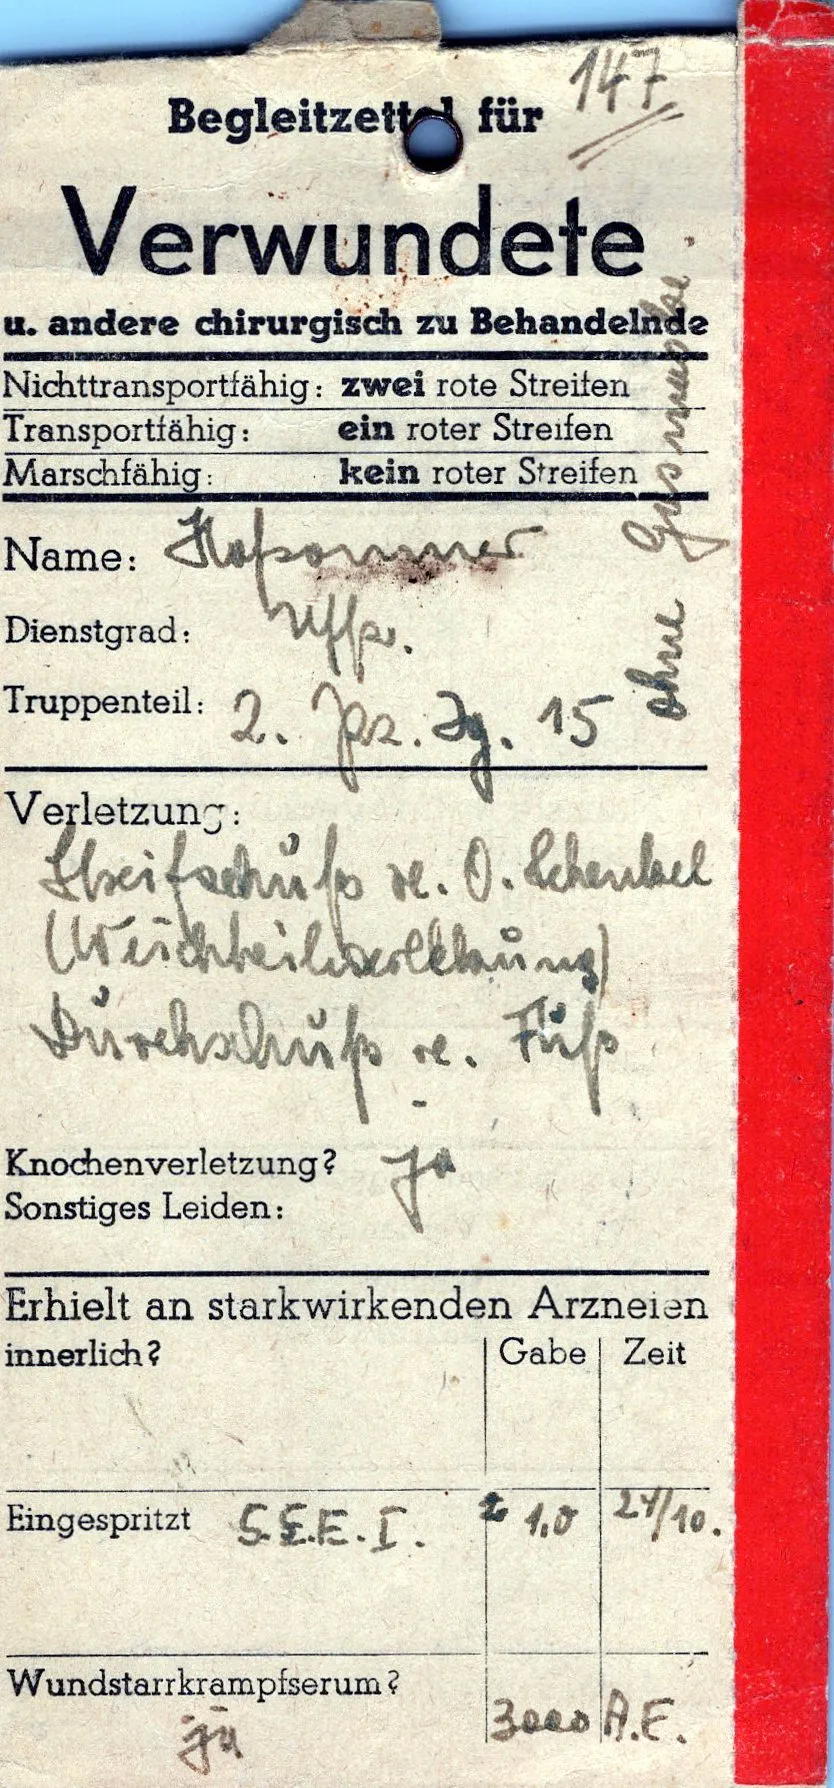 147
Begleitzettel für
Verwundete
u. andere chirurgisch zu Behandelnde
Nichttransportfähig: zwei rote Streifen
Transportfähig: ein roter Streifen
Marschfähig: kein roter Streifen
ohne Gasmaske
Name:
Dienstgrad: Uffz.
Truppenteil: 2. Pz. Jg. 15
Verletzung:
Streifschuß re. O. Schenkel
(Weichteilverletzung)
Durchschuß re. Fuß
Knochenverletzung? ja
Sonstiges Leiden:
Erhielt an starkwirkenden Arzneien
innerlich? Gabe Zeit
Eingespritzt S.E.E. I. 1,0 24/10.
Wundstarrkrampfserum?
ja 3000 A.E.